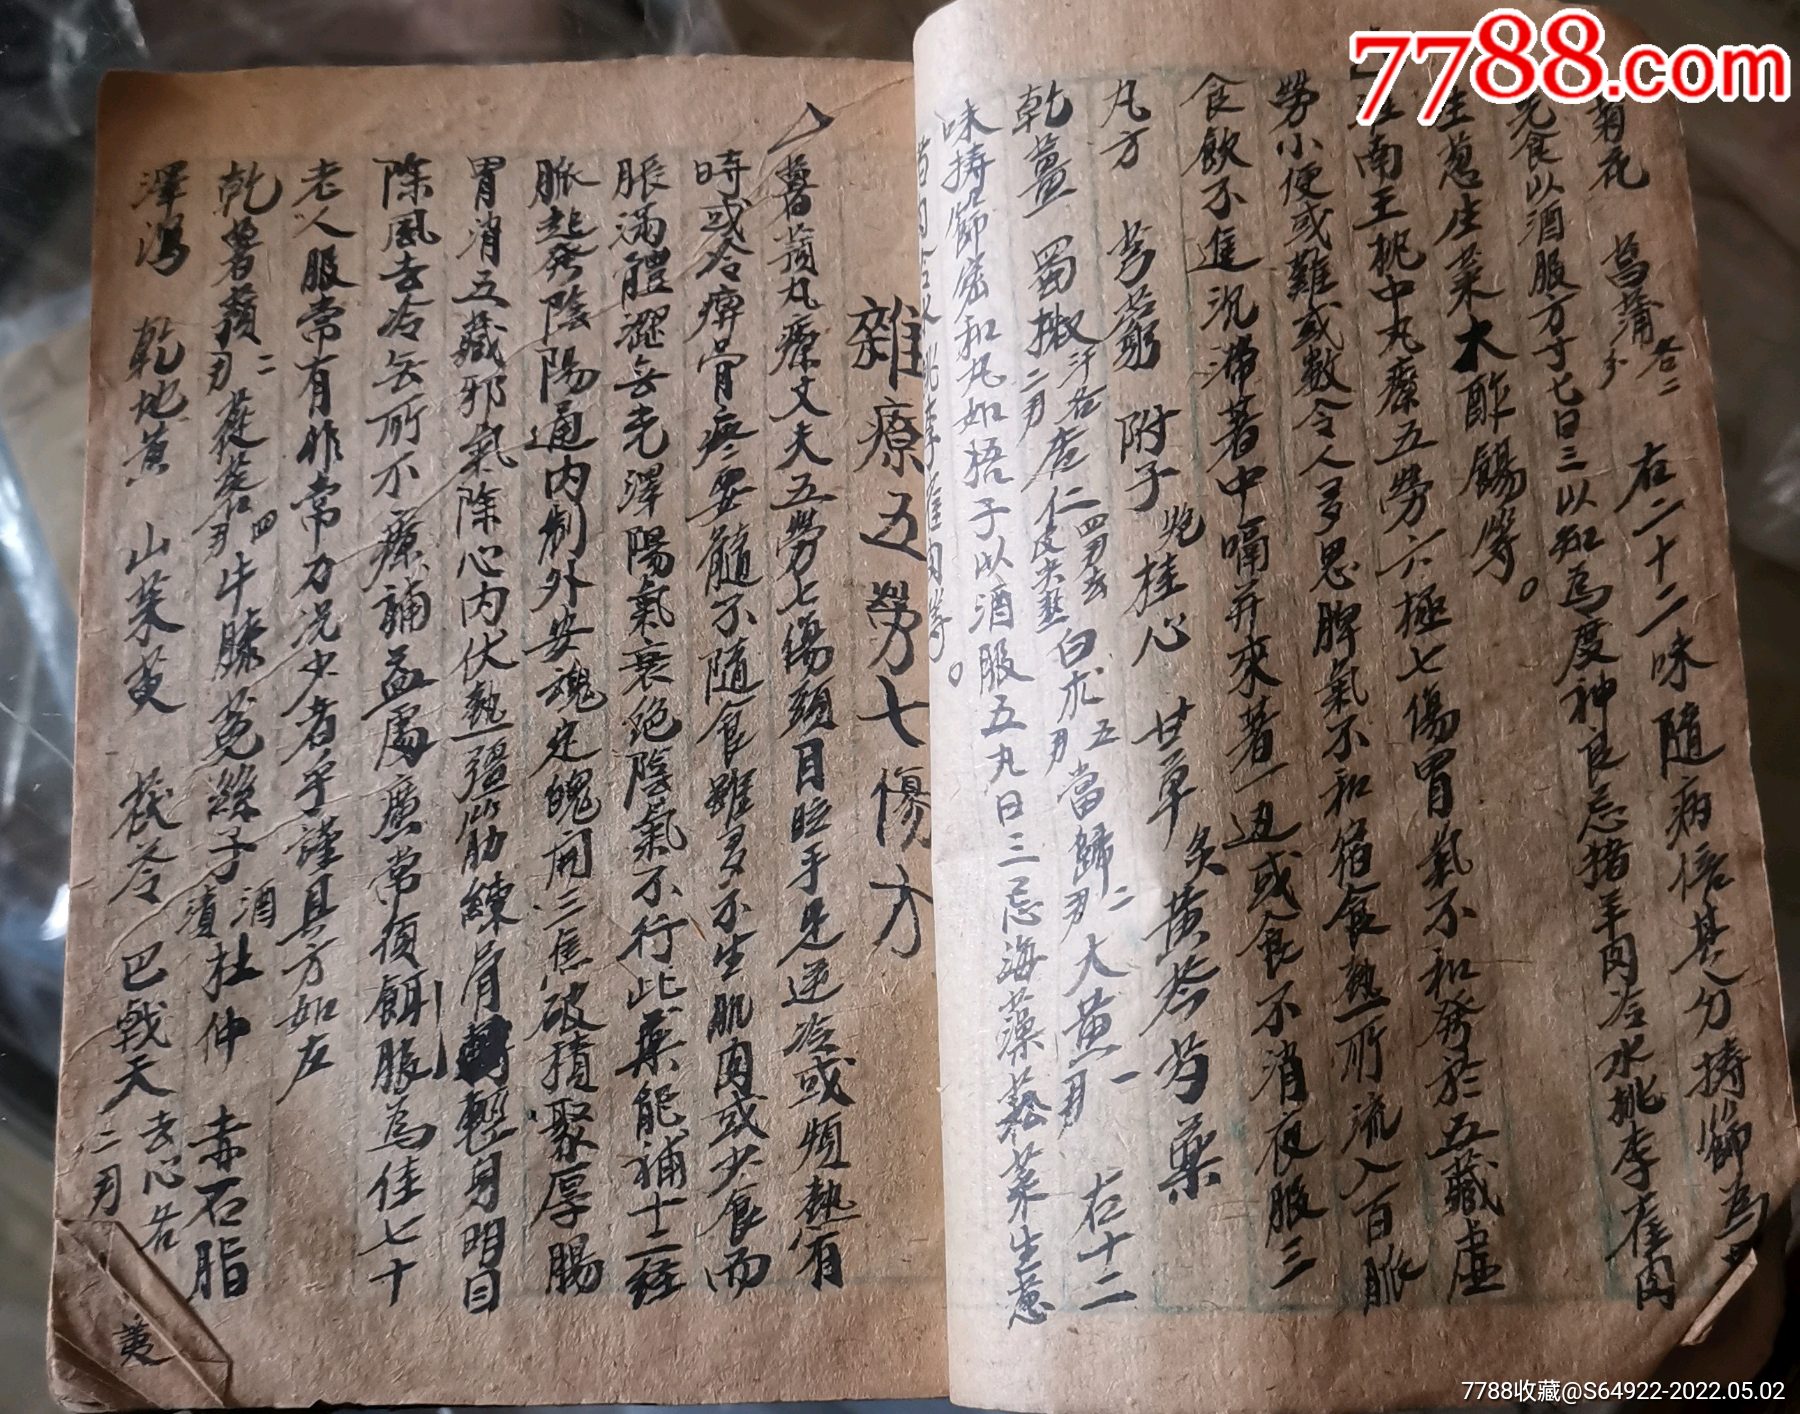 7788.com
菊花 菖蒲 各二分 右二十二味隨病倍其分擣篩為
先食以酒服方寸匕日三以知為度神良忌猪羊肉冷水桃李雀肉
生葱生菜大酢餳等。
淮南王枕中丸療五勞六極七傷胃氣不和發於五藏虛
勞小便或難或數令人多思脾氣不和宿食熱所流入百脈
食飲不進沉滯著中嗝并來著一边或食不消夜服三
丸方 芎藭 附子 炮 桂心 甘草 炙 黃芩 芍藥
乾薑 蜀椒 汗各二两 杏仁 四两去皮尖熬 白朮 五两 當歸 二两 大黃 一两 右十二
味擣篩蜜和丸如梧子以酒服五丸日三忌海藻菘菜生葱
猪肉冷水桃李雀肉等。
雜療五勞七傷方
薯蕷丸療丈夫五勞七傷頭目眩手足逆冷或煩熱有
時或冷痹骨疼要髓不隨食雖多不生肌肉或少食而
脹滿體澀無光澤陽氣衰絕陰氣不行此藥能補十二經
脈起發陰陽通内制外安魂定魄開三焦破積聚厚腸
胃消五藏邪氣除心内伏熱彊筋練骨輕身明目
除風去冷無所不療補益處廣常須餌服為佳七十
老人服常有非常力况少者乎謹具方如左
乾薯蕷 二两 蓯蓉 四两 牛膝 菟絲子 酒漬 杜仲 赤石脂
澤瀉 乾地黃 山茱萸 茯苓 巴戟天 去心各二两
萸
7788收藏@S64922-2022.05.02